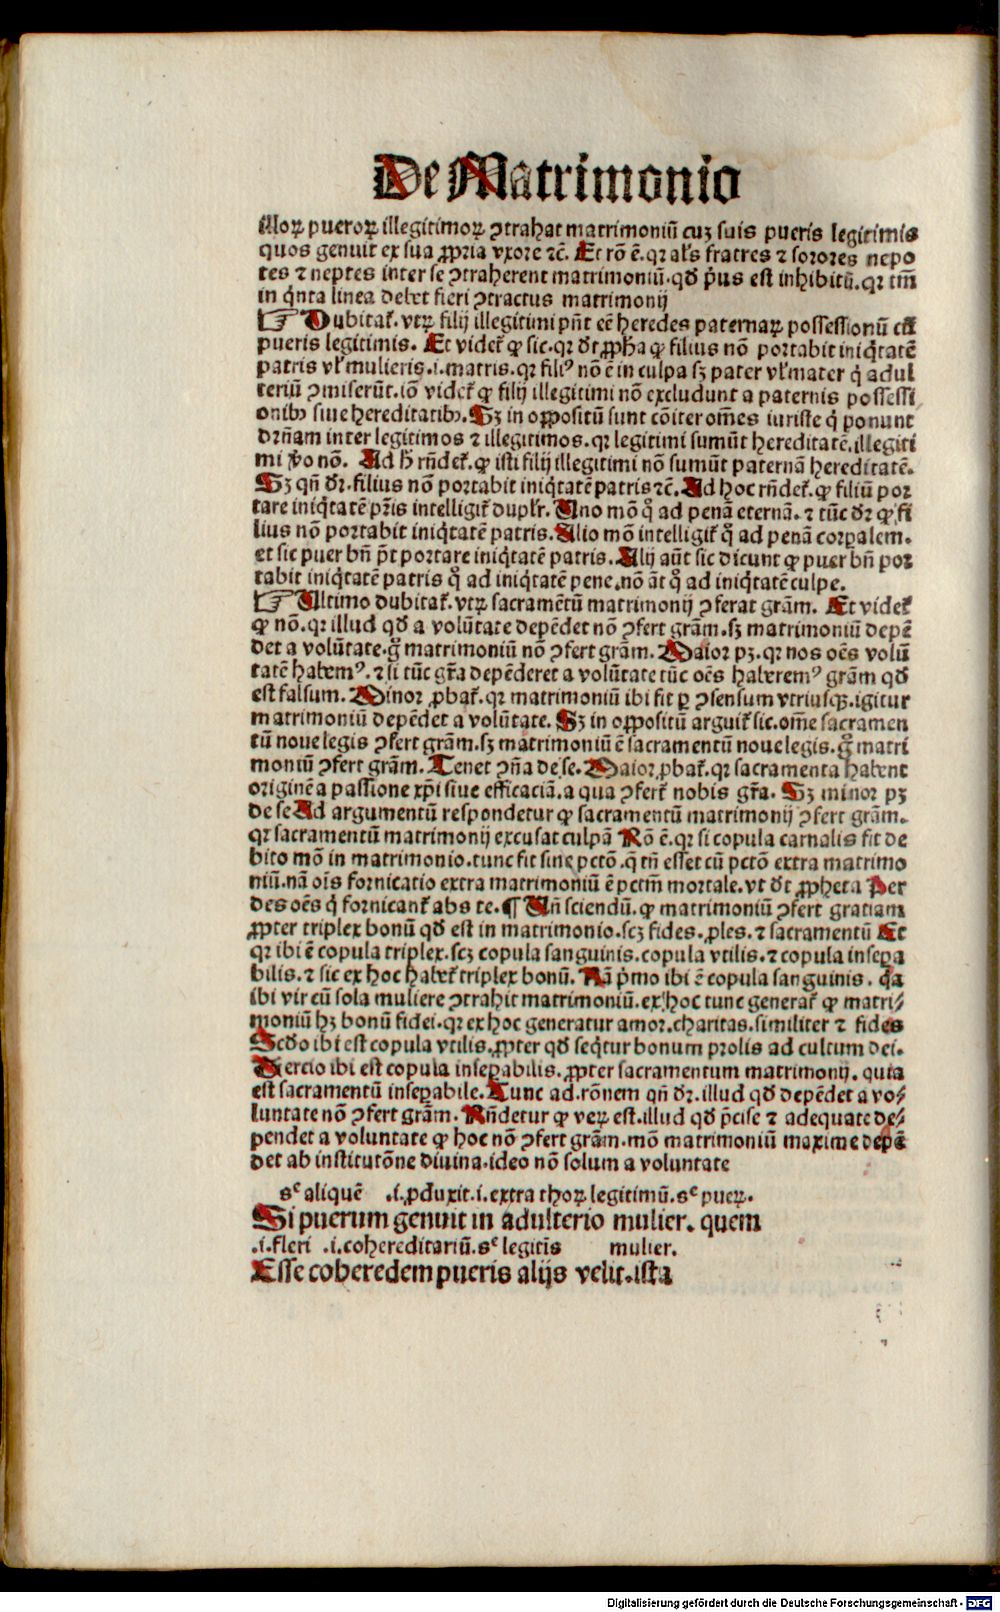 De Matrimonio
illoꝝ pueroꝝ illegitimoꝝ ↄtrahat matrimoniū cuꝫ suis pueris legitimis
quos genuit ex sua ꝓpria vxore ⁊c̄. Et rō ē. qꝛ al's fratres ⁊ sorores nepo
tes ⁊ neptes inter se ↄtraherent matrimoniū. qd̛ p̄us est inhibitū. qꝛ tm̄
in q̇nta linea debet fieri ↄtractus matrimonij
☞ Dubitat᷑. vtꝝ filij illegitimi pn̄t eē heredes paternaꝝ possessionū cū
pueris legitimis. Et videt᷑ ꝙ sic. qꝛ dt̛ ꝓpha ꝙ filius nō portabit iniq̇tatē
patris vl' mulieris .i. matris. qꝛ filiꝰ nō ē in culpa sꝫ pater vl' mater q̇ adul
teriū ↄmiserūt. iō videt᷑ ꝙ filij illegitimi nō excludunt a paternis possessi
onibꝰ siue hereditatibꝰ. Sꝫ in oppositū sunt cōiter om̄es iuriste q̇ ponunt
dr̄nam inter legitimos ⁊ illegitimos. qꝛ legitimi sumūt hereditatē. illegiti
mi v̄o nō. Ad h̄ rn̄det᷑. ꝙ isti filij illegitimi nō sumūt paternā hereditatē.
Sꝫ qn̄ dr̛. filius nō portabit iniq̇tatē patris ⁊c̄. Ad hoc rn̄det᷑. ꝙ filiū por
tare iniq̇tatē pr̄is intelligit᷑ duplr̛. Uno mō qͦ ad penā eternā. ⁊ tūc dr̛ ꝙ fi
lius nō portabit iniq̇tatē patris. Alio mō intelligit᷑ qͦ ad penā corꝑalem.
et sic puer bn̄ p̄t portare iniq̇tatē patris. Alij aūt sic dicunt ꝙ puer bn̄ por
tabit iniq̇tatē patris qͦ ad iniq̇tatē pene. nō āt qͦ ad iniq̇tatē culpe.
☞ Ultimo dubitat᷑. vtꝝ sacramētū matrimonij ↄferat grām. Et videt᷑
ꝙ nō. qꝛ illud qd̛ a volūtate depēdet nō ↄfert grām. sꝫ matrimoniū depē
det a volūtate. gͦ matrimoniū nō ↄfert grām. Maior pꝫ. qꝛ nos oēs volū
tatē habemꝰ. ⁊ si tūc gr̄a depēderet a volūtate tūc oēs haberemꝰ grām qd̛
est falsum. Minor ꝓbat᷑. qꝛ matrimoniū ibi fit ꝑ ↄsensum vtriusqꝫ. igitur
matrimoniū depēdet a volūtate. Sꝫ in oppositū arguit᷑ sic. om̄e sacramen
tū noue legis ↄfert grām. sꝫ matrimoniū ē sacramentū noue legis. gͦ matri
moniū ↄfert grām. Tenet ↄn̄a de se. Maior ꝓbat᷑. qꝛ sacramenta habent
originē a passione xp̄i siue efficaciā. a qua ↄfert᷑ nobis gr̄a. Sꝫ minor pꝫ
de se Ad argumentū respondetur ꝙ sacramentū matrimonij ↄfert grām.
qꝛ sacramentū matrimonij excusat culpā Rō ē. qꝛ si copula carnalis fit de
bito mō in matrimonio. tunc fit sine pctō. q̄ tn̄ esset cū pctō extra matrimo
niū. nā oīs fornicatio extra matrimoniū ē pctm̄ mortale. vt dt̛ ꝓpheta Per
des oēs q̇ fornicant᷑ abs te. ¶ Un̄ sciendū. ꝙ matrimoniū ↄfert gratiam
ꝓpter triplex bonū qd̛ est in matrimonio. scꝫ fides. ꝓles. ⁊ sacramentū Et
qꝛ ibi ē copula triplex. scꝫ copula sanguinis. copula vtilis. ⁊ copula insepa
bilis. ⁊ sic ex hoc habet᷑ triplex bonū. Nā p̄mo ibi ē copula sanguinis. q̄a
ibi vir cū sola muliere ↄtrahit matrimoniū. ex hoc tunc generat᷑ ꝙ matri⸗
moniū hꝫ bonū fidei. qꝛ ex hoc generatur amor. charitas. similiter ⁊ fides
Scd̛o ibi est copula vtilis. ꝓpter qd̛ seq̇tur bonum prolis ad cultum dei.
Tercio ibi est copula inseꝑabilis. ꝓpter sacramentum matrimonij. quia
est sacramentū inseꝑabile. Tunc ad rōnem qn̄ dr̛. illud qd̛ depēdet a vo⸗
luntate nō ↄfert grām. Rn̄detur ꝙ veꝝ est. illud qd̛ p̄cise ⁊ adequate de⸗
pendet a voluntate ꝙ hoc nō ↄfert grām. mō matrimoniū maxime depē
det ab institutōne diuina. ideo nō solum a voluntate
sᶜ aliquē .i. ꝓduxit. .i. extra thoꝝ legitimū. sᶜ pueꝝ.
Si puerum genuit in adulterio mulier. quem
.i. fieri .i. cohereditariū. sᶜ legitīs mulier.
Esse coheredem pueris alijs velit. ista
Digitalisierung gefördert durch die Deutsche Forschungsgemeinschaft - DFG